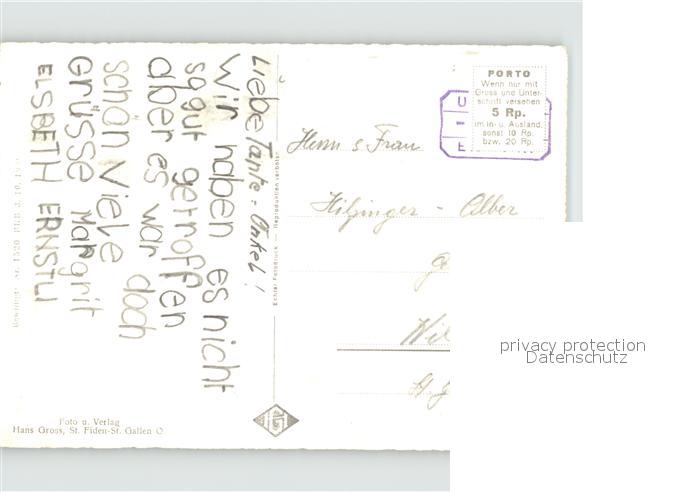 Liebe Tante - Onkel!
Wir haben es nicht
so gut getroffen
aber es war doch
schön Viele
GRÜSSE MARgrit
ELSBETH ERNSTLI
Bewilligt Nr. 1520 BRB 3. 10. 1939
Foto u. Verlag
Hans Gross, St. Fiden-St. Gallen O
Echter Fotodruck — Reproduktion verboten
PORTO
Wenn nur mit
Gruss und Unter-
schrift versehen
5 Rp.
im in- u. Ausland,
sonst 10 Rp.
bzw. 20 Rp.
U
E
Herrn & Frau
Hilzinger - Alber
Wil
St. G
privacy protection
Datenschutz